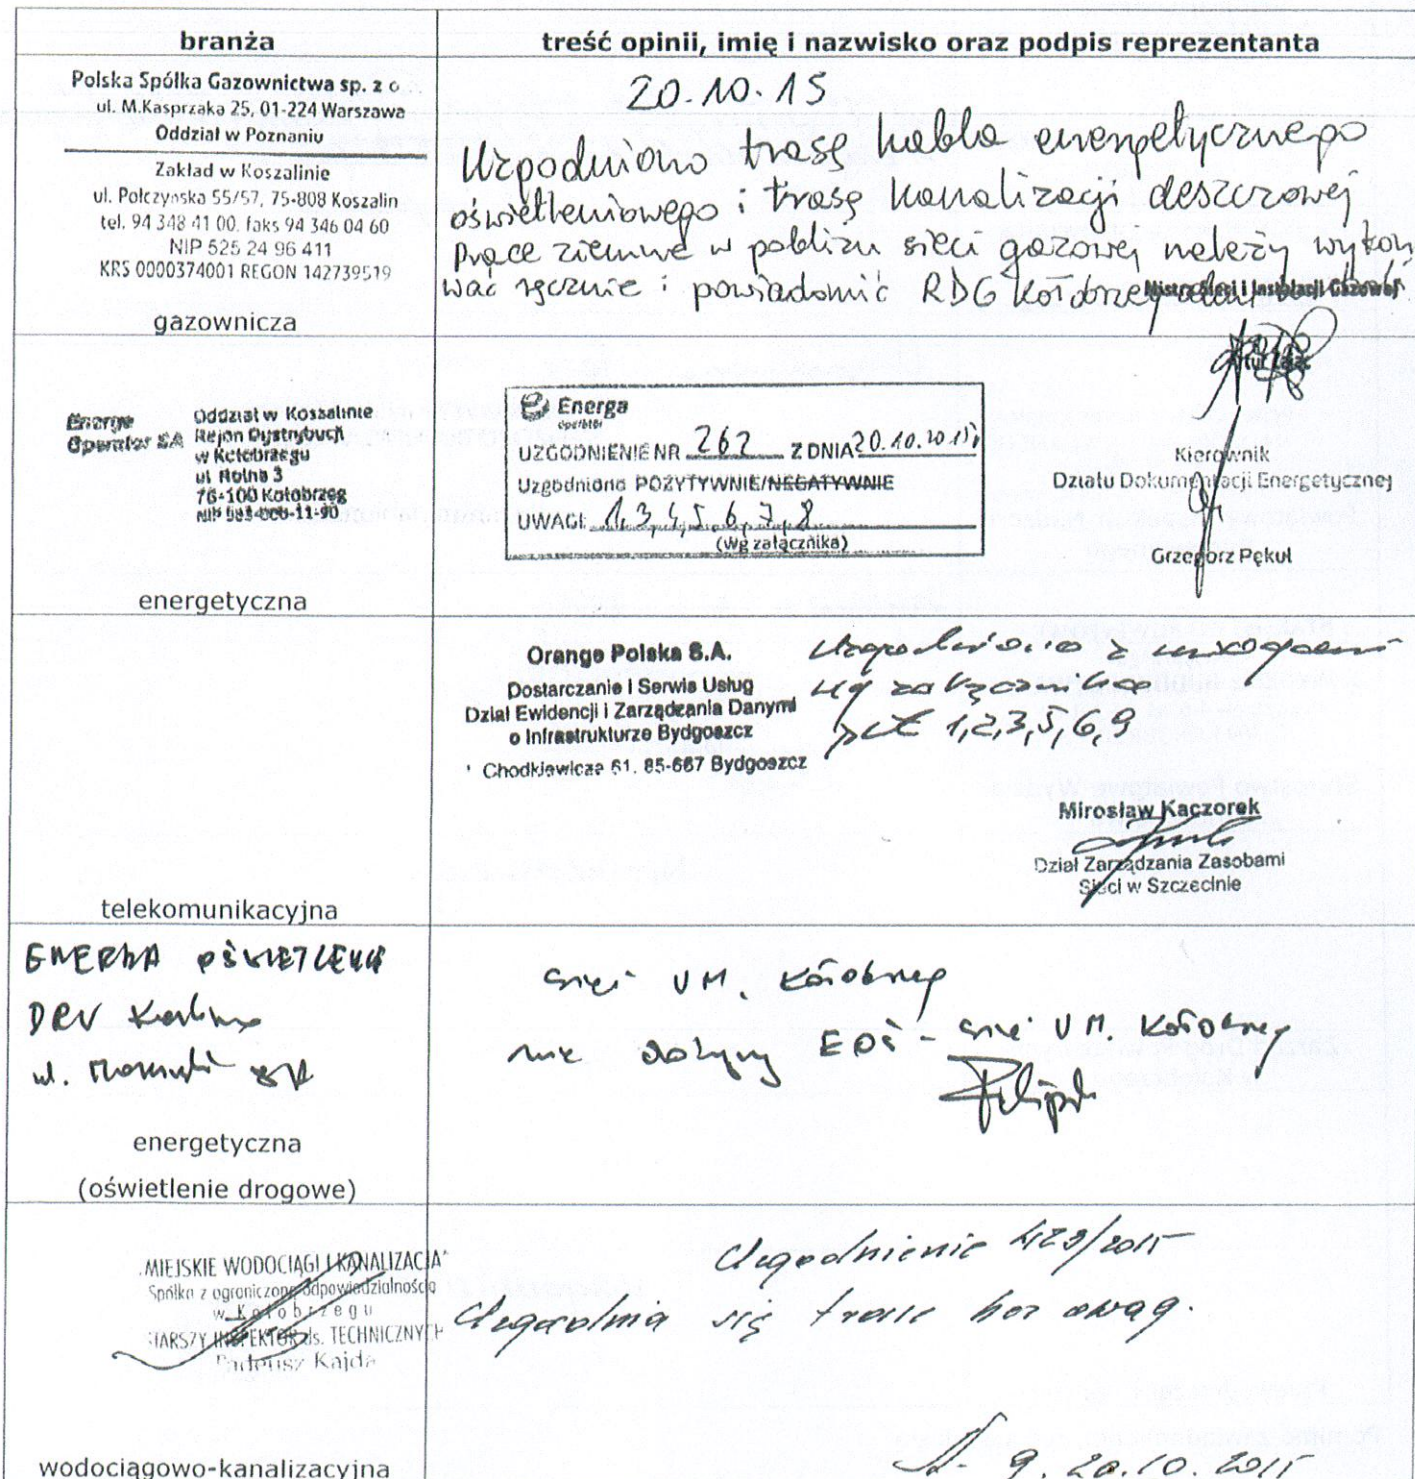 branża
treść opinii, imię i nazwisko oraz podpis reprezentanta
Polska Spółka Gazownictwa sp. z o
ul. M.Kasprzaka 25, 01-224 Warszawa
Oddział w Poznaniu
Zakład w Koszalinie
ul. Połczyńska 55/57, 75-808 Koszalin
tel. 94 348 41 00, faks 94 346 04 60
NIP 525 24 96 411
KRS 0000374001 REGON 142739519
gazownicza
20.10.15
Uzgodniono trasę kabla energetycznego
oświetleniowego i trasę kanalizacji deszczowej
Prace ziemne w pobliżu sieci gazowej należy wykony
wać ręcznie i powiadomić RDG Kołobrzeg
Mistrz Sieci i Instalacji Gazowej
Energa Operator SA
Oddział w Koszalinie
Rejon Dystrybucji
w Kołobrzegu
ul Rolna 3
76-100 Kołobrzeg
energetyczna
Energa
Operator
UZGODNIENIE NR 262 Z DNIA 20.10.2015
Uzgodniono POZYTYWNIE/NEGATYWNIE
UWAGI: 1,3,4,5,6,7,8
(wg załącznika)
Kierownik
Działu Dokumentacji Energetycznej
Grzegorz Pękul
Orange Polska S.A.
Dostarczanie i Serwis Usług
Dział Ewidencji i Zarządzania Danymi
o Infrastrukturze Bydgoszcz
Chodkiewicza 61, 85-667 Bydgoszcz
Uzgodniono z uwagami
wg załącznika
pkt 1,2,3,5,6,9
Mirosław Kaczorek
Dział Zarządzania Zasobami
Sieci w Szczecinie
telekomunikacyjna
ENERGA OŚWIETLENIE
ul.
energetyczna
(oświetlenie drogowe)
sieć UM. Kołobrzeg
nie dotyczy EOŚ - sieć UM. Kołobrzeg
„MIEJSKIE WODOCIĄGI I KANALIZACJA"
Spółka z ograniczoną odpowiedzialnością
w Kołobrzegu
STARSZY INSPEKTOR ds. TECHNICZNYCH
Tadeusz Kajda
wodociągowo-kanalizacyjna
Uzgodnienie 423/2015
Uzgadnia się trasę bez uwag.
20.10.2015